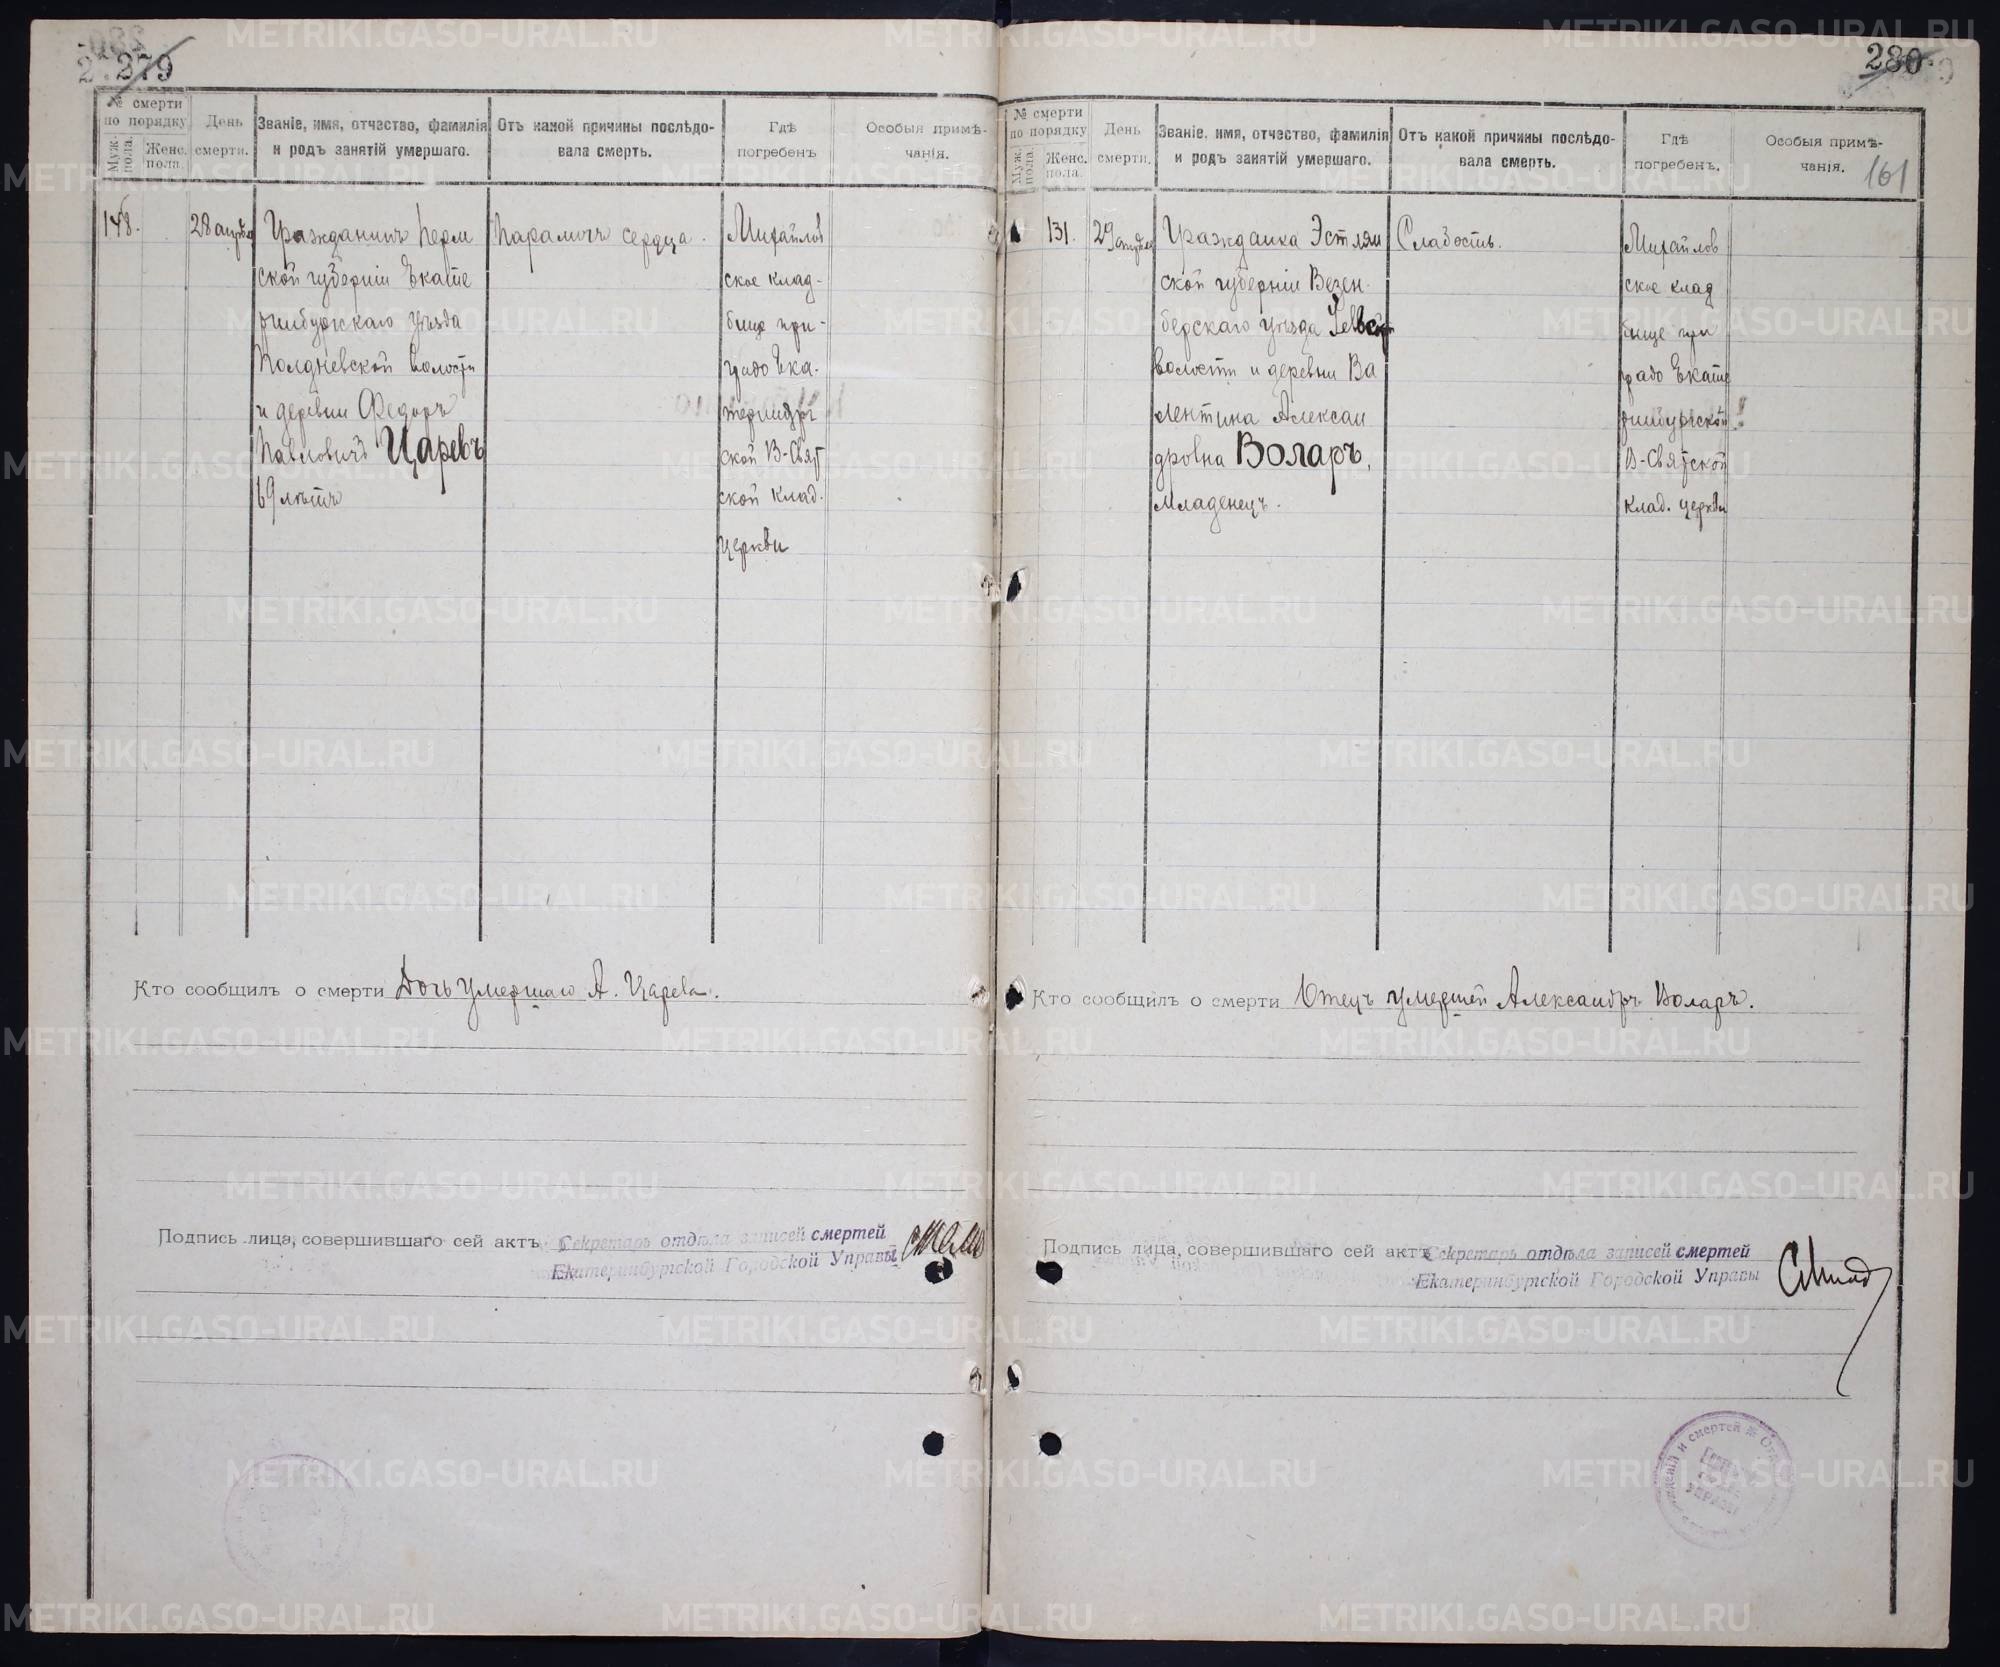 279
№ смерти
по порядку
Муж. пола.
Женс. пола.
День
смерти.
Званіе, имя, отчество, фамилія
и родъ занятій умершаго.
Отъ какой причины послѣдо-
вала смерть.
Гдѣ
погребенъ
Особыя примѣ-
чанія.
148.
28 апрѣля
Гражданинъ Перм
ской губерніи Екате
ринбургскаго уѣзда
Полдневской волости
и деревни Федоръ
Павловичъ Царевъ
69 лѣтъ
Параличъ сердца.
Михайлов
ское клад-
бище при-
градо Ека-
теринбург
ской В-Свят
ской клад.
церкви
Кто сообщилъ о смерти Дочь умершаго А. Царева.
Подпись лица, совершившаго сей актъ Секретарь отдѣла записей смертей
Екатеринбургской Городской Управы
280
№ смерти
по порядку
Муж. пола.
Женс. пола.
День
смерти.
Званіе, имя, отчество, фамилія
и родъ занятій умершаго.
Отъ какой причины послѣдо-
вала смерть.
Гдѣ
погребенъ.
Особыя примѣ-
чанія.
161
131.
29 апрѣля
Гражданка Эстлян
ской губерніи Везен-
бергскаго уѣзда
волости и деревни Ва
лентина Алексан
дровна Воларъ,
младенецъ.
Слабость.
Михайлов
ское клад
бище при
градо Екате
ринбургской
В-Святской
клад. церкви
Кто сообщилъ о смерти Отецъ умершей Александръ Воларъ.
Подпись лица, совершившаго сей актъ Секретарь отдѣла записей смертей
Екатеринбургской Городской Управы
METRIKI.GASO-URAL.RU